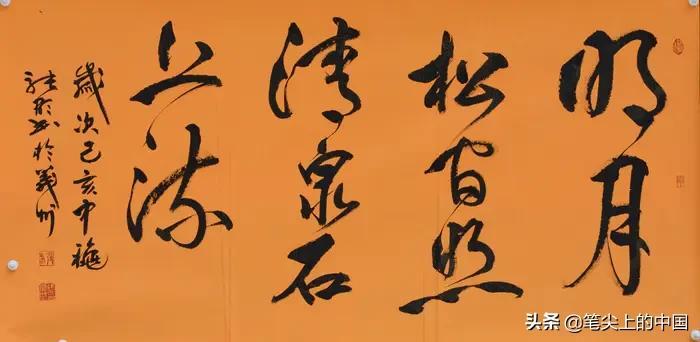 明月
松间照
清泉石
上流
歲次己亥中穐
於義州
头条 @笔尖上的中国